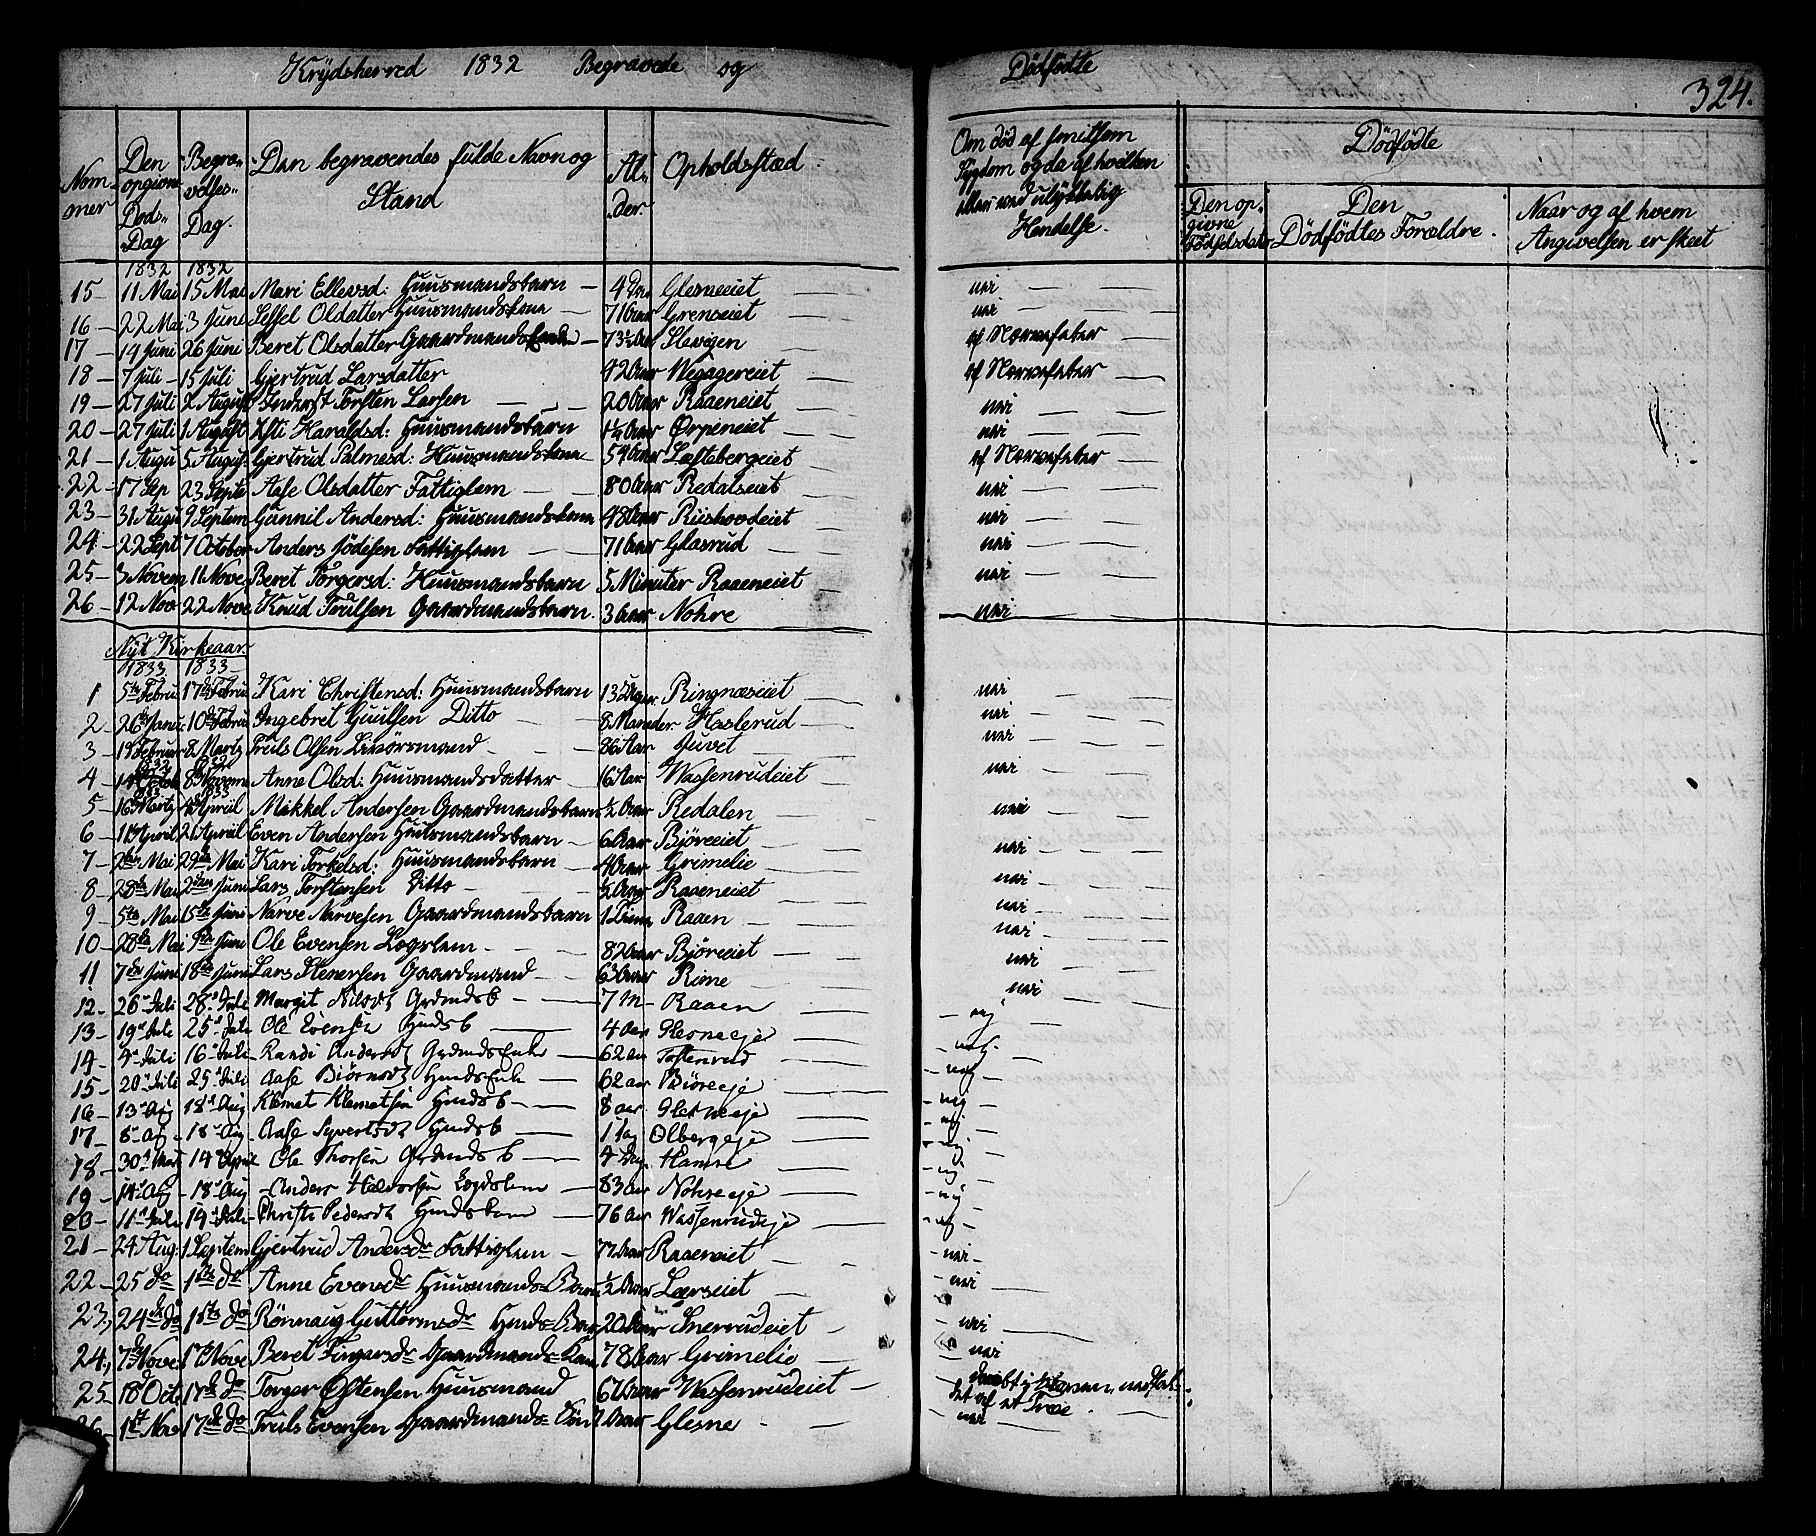 Krÿdsherred 1832 Begravede og Dödfödte 324.
Nommer
Den opgivne Döds-Dag
Begravelses-Dag.
Den begravendes fulde Navn og Stand
Alder.
Opholdsstæd
Om död af smitsom Sygdom og da af hvilken eller ved ulÿkkelig Hendelse.
Dödfödte
Den opgivne Födselsdato
Den Dödfödtes Forældre.
Naar og af hvem Angivelsen er skeet
1832 1832
15 - 11 Mai 15 Mai Mari Ellevsd: Huusmandsbarn - 4 Dage Glesneeiet nei
16 - 22 Mai 3 Juni Sessel Olsdatter Huusmandskone - 71 Aar Grenseiet nei
17 - 14 Juni 26 Juni Beret Olsdatter Gaardmands - 73½ Aar Slevigen af Nervefeber
18 - 7 Juli - 15 Juli Gjertrud Larsdatter 42 Aar af Nervefeber
19 - 27 Juli 2 August Inderst Torsten Larsen 20 Aar Raaeneiet nei
20 - 27 Juli 1 August Haraldsd: Huusmandsbarn 1½ Aar Örpeneiet nei
21 - 1 Augu 5 August Gjertrud Palmesd: Huusmandskone 54 Aar Løfteberget af Nervefeber
22 - 17 Sep 23 Septe Aase Olsdatter Fattiglem 80 Aar Redalseiet nei
23 - 31 Augu 9 Septem Gunnil Andersd: Huusmandskone 48 Aar Riishovdeiet nei
24 - 22 Sept 7 October Anders Fattiglem 71 Aar Glasrud nei
25 - 3 Novem 11 Nove Beret Torgersd: Huusmandsbarn 5 Minuter Raaeneiet nei
26 - 12 Nov 22 Nove Knud Trulsen Gaardmandsbarn. 3 Aar Nohre nei
Nÿt Kirkeaar
1833 1833
1 5te Februar 17de Februar Kari Christensd: Huusmandsbarn 13 Dager Ringnæseiet nei
2 26de Janu: 10de Febru Ingebret Guulsen Ditto - 8 Maaneder Haslerud nei
3 - 19 Februar 8 Martz Truls Olsen Livörsmand 86 Aar Juvet nei
1832 1832
4 - 14 8 Novem Anne Olsd: Huusmandsdatter 16 Aar Wassenrudeiet nei
1833 1833
5 - 16 Martz April Mikkel Andersen Gaardmandsbarn ½ Aar Redalen nei
6 - 11 April 21 April Even Andersen Huusmandsbarn 6 Aar Björeeiet nei
7 - 2den Mai 29de Mai Kari Torkelsd: Huusmandsbarn 4 Aar Grimelie nei
8 28de Mai 2den Juni Lars Torstensen Ditto ½ Aar Raaeneiet nei
9 5te Mai 15de Juni Narve Narvesen Gaardmandsbarn 1 Time Raaen nei
10 - 28de Mai 9de Juni Ole Evensen Lægslem - 82 Aar Björeeiet nei
11 7de Juni 18de Juni Lars Stenersen Gaardmand 63 Aar Rime nei
12. 26 Juli 28 Juli Margit Nilsdt Grdmdsb 7 M - Raaen nej
13 - 19 Juli 25 Juli Ole Evensen Hmdsb 4 Aar Glesneeje nej
14 - 4 Juli 16 Juli Randi Andersdt GrdmdsEnke 62 aar Tostenrud nej
15 - 20 Juli 25 Juli Aase Biörnsdt HmdsEnke 62 aar Biöreeje nej
16 - 13 Aug 18 Aug Klemet Klemetsen Hmdsb 8 aar Glesneeje nej
17 - 8 Aug 18 Aug Aase Syvertsdt Hmdsb 1 Dag Olbergeje nej
18 - 30 Mai 14 April Ole Thorsen Grdmdsb 4 Dag. Hamre nej
19 - 14 Aug 18 Aug Anders Halvorsen Lægdslem 83 aar Nohreeje nej
20 - 11 Juli 14 Juli Christi Pedersdt Hmdskone 76 aar Wassenrudeje nej
21 - 24 Aug: 1 Septem Gjertrud Andersdr Fattiglem - 77 Aar Raaeneiet nei
22 - 25 do 1ste do Anne Evensdr Huusmands-Barn ½ Aar Lærseiet nei
23, 24de do 1ste do Rönnaug Guttormsdr Hmds-Barn 20 Aar Snerrudeiet nei
24., 7 Nove 17 Nove Beret Fingarsdr Gaardmands-Kone 78 Aar Grimelie nei
25. 18 Oct. 17de do Torger Östensen Huusmand 67 Aar Wassenrudeiet
26 1st Nov 17de do Truls Evensen Gaardmands Sön Aar Glesne nei